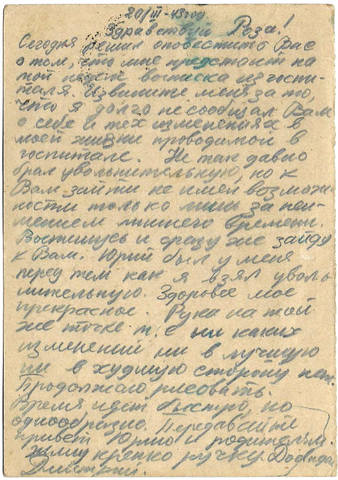 20/III-43 год
Здравствуй Роза!
Сегодня решил оповестить Вас
о том, что мне предстоит на
той выписка из госпи-
таля. Извините меня за то,
что я долго не сообщал Вам
о себе и тех изменениях в
моей жизни проводимой в
госпитале. Не так давно
брал увольнительную, но к
Вам зайти не имел возможн
ности только лишь за неи-
мением лишнего времени.
Выпишусь и сразу же зайду
к Вам. Юрий был у меня
перед тем как я взял уволь
нительную. Здоровье мое
прекрасное. Рука на той
же точке т.е. ни каких
изменений ни в лучшую
ни в худшую сторону нет.
Продолжаю рисовать.
Время идет быстро, но
однообразно. Передавайте
привет Юрию и родителям.
Жму крепко ручку.